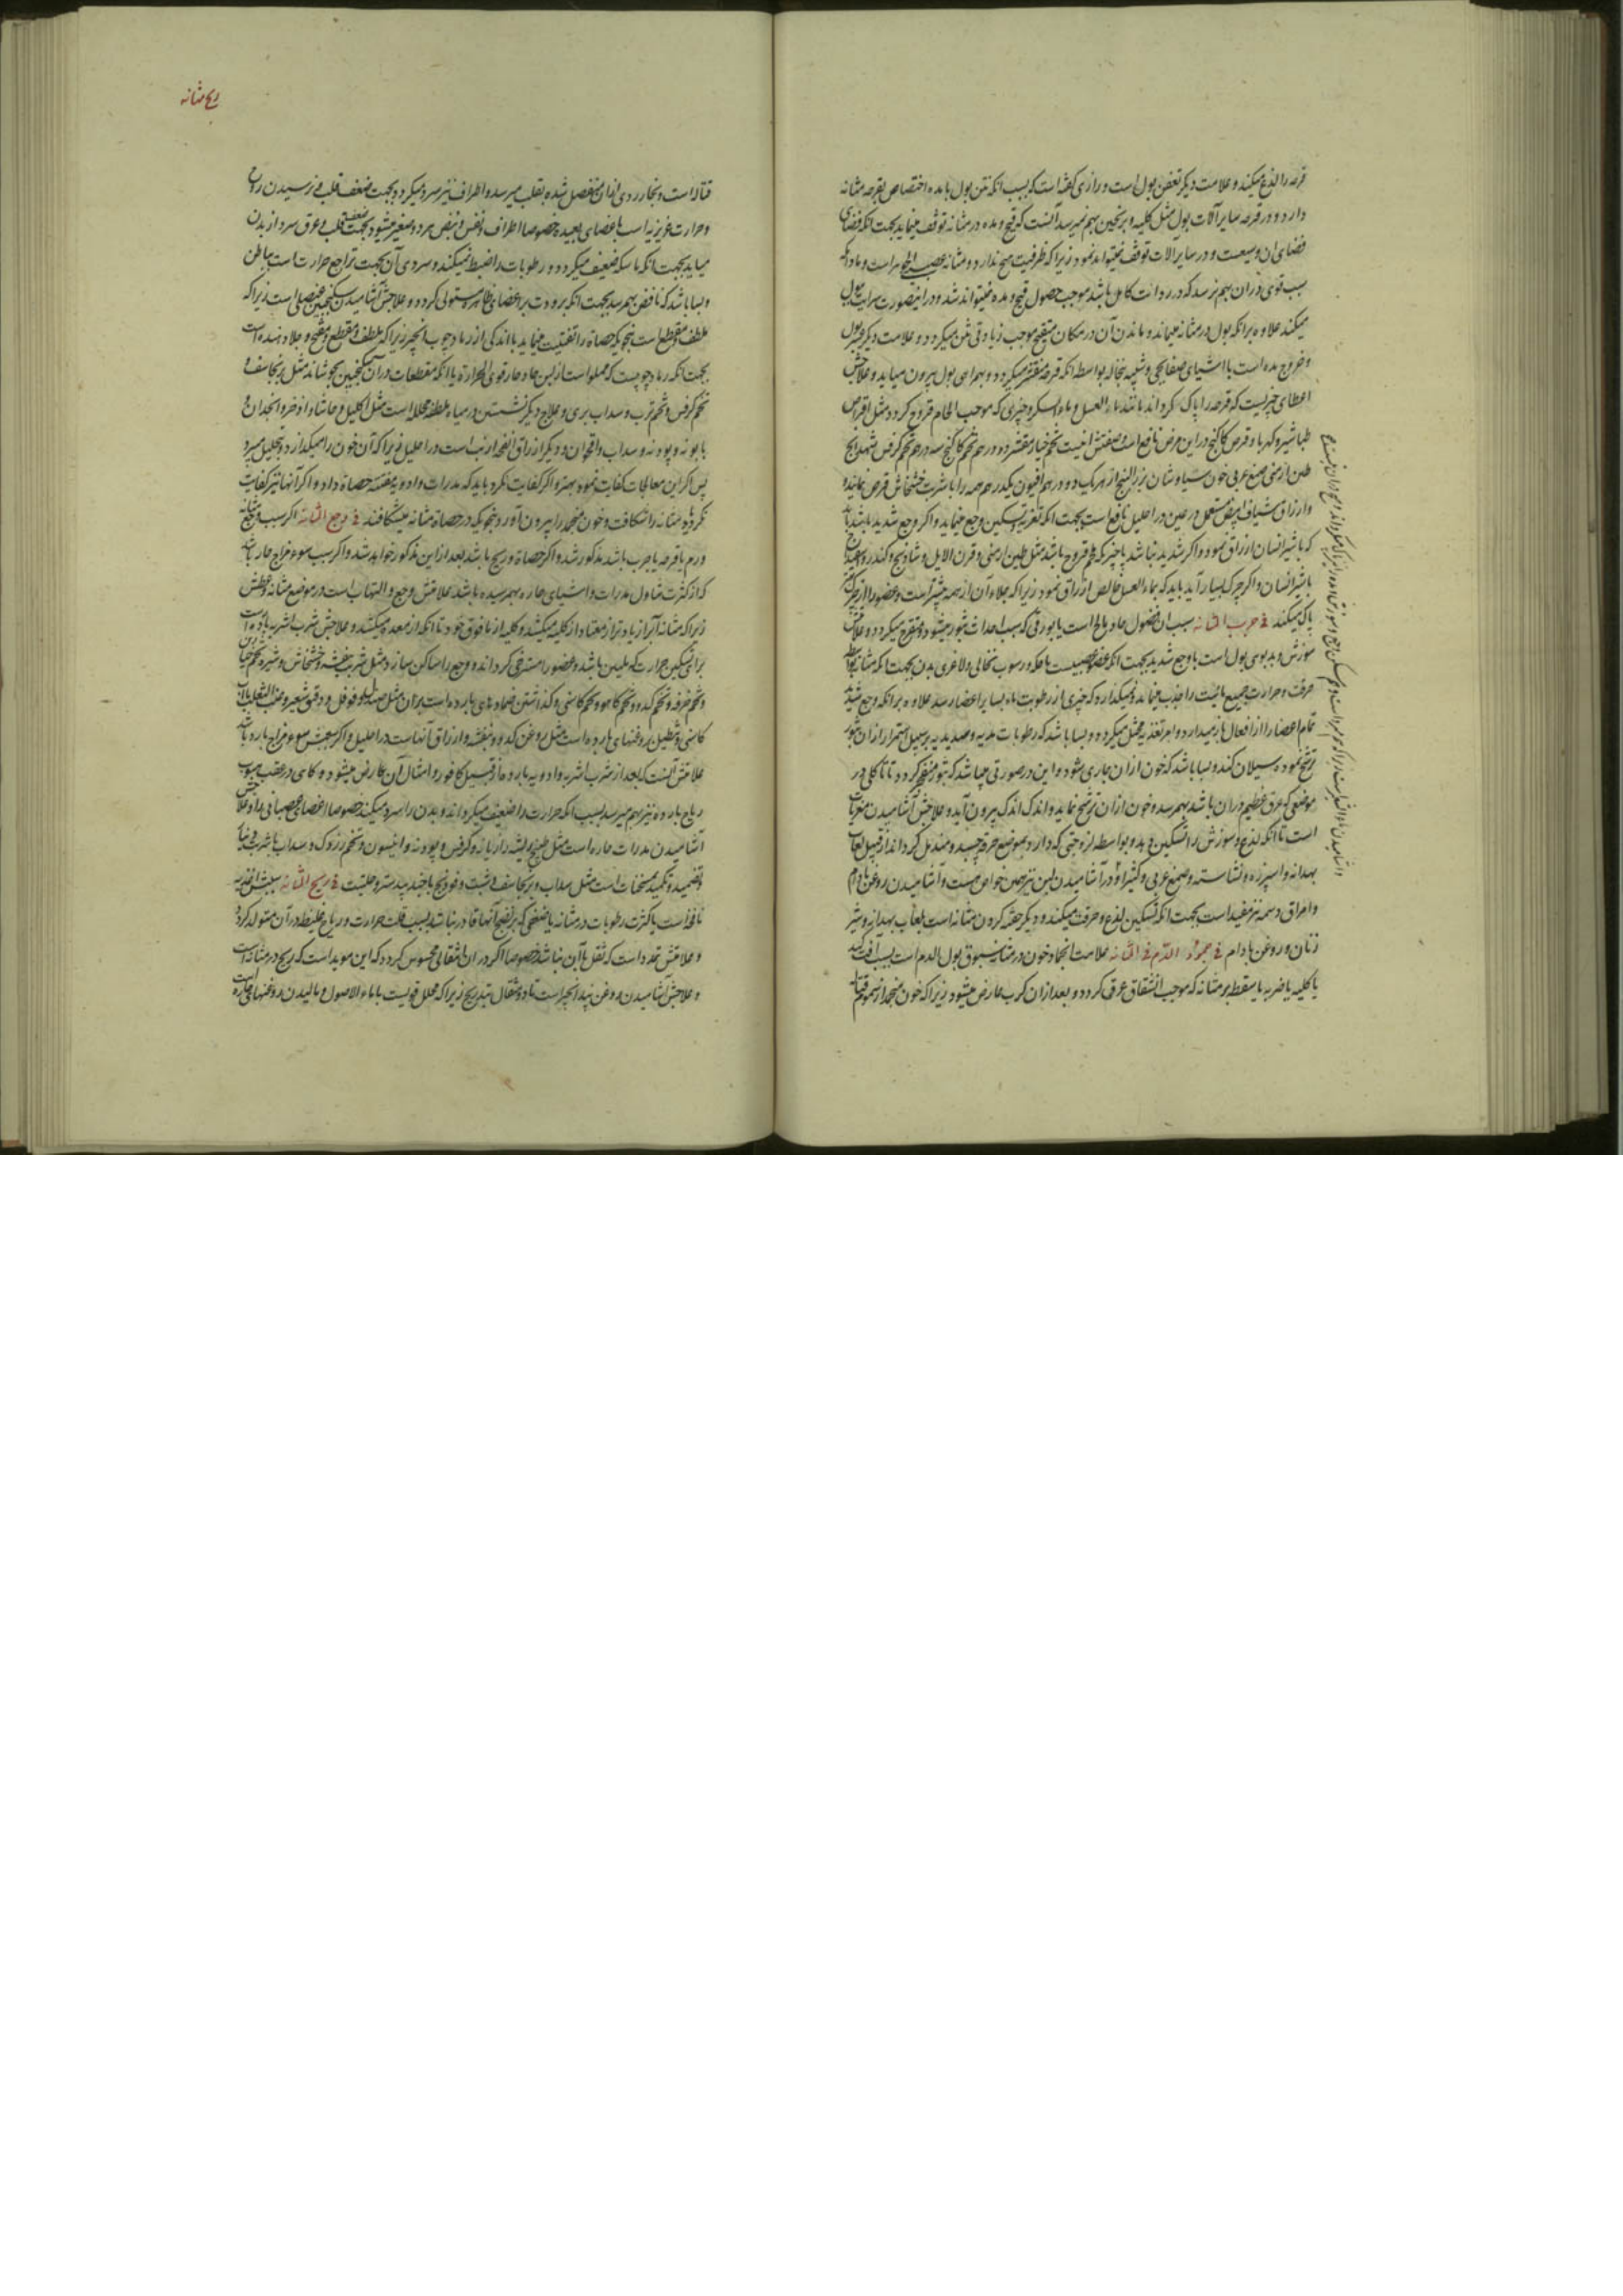 قرحه را لذع میکند و علامت دیگر تعفن بول است و رازی گفته است که بسبب انکه نتن بول با مده اختصاص بقرحه مثانه
دارد و در قرحه سایر آلات بول مثل کلیه و بربخین بهم نمیرسد آنست که قیح و مده در مثانه توقف مینماید بجهت انکه فضای
فضای ان وسیعست و در سایر آلات توقف نمیتواند نمود زیرا که ظرفیت هیچ ندارد و مثانه عصبی الجوهر است و مادام که
سبب قوی در ان بهم نرسد که در رداءت کامل باشد موجب حصول قیح و مده نمیتواند شد و در اینصورت سرایت ببول
میکند علاوه بر انکه بول در مثانه میماند و ماندن آن در مکان متقیح موجب زیادتی نتن میکردد و علامت دیگر عسر بول
و خروج مده است با اشیای صفایحی و شبیه بنخاله بواسطه انکه قرحه متقشر میکردد و بهمراهی بول بیرون میاید و علاجش
اعطای چیزیست که قرحه را پاک کرداند مانند ماء العسل و ماء السکر و چیزی که موجب الحام قروح کردد مثل اقراص
طباشیر و کهربا و قرص کاکنج در این مرض نافع است و صفتش اینست تخم خیار مقشر ده درهم تخم کاکنج سه درهم تخم کرفس شهدانج
طین ارمنی صمغ عربی خون سیاوشان بزر البنج از هر یک دو درهم افیون یکدرهم همه را با شربت خشخاش قرص نمایند
و ازراق شیاف ابیض مستعمل در عین در احلیل نافع است بجهت انکه تغریه و تسکین وجع مینماید و اگر وجع شدید باشد باید
که با شیر انسان ازراق نمود و اگر شدید نباشد با چیزیکه ملحم قروح باشد مثل طین ارمنی و قرن الایل و شادنج و کندر و
با شیر انسان و اگر چرک بسیار آید باید که بماء العسل خالص ازراق نمود زیرا که جلاء آن از همه بیشتر است و عضو را از چرک
پاک میکند فی جرب المثانه سبب ان فضول حاد مالح است یا بورقی که سبب احداث بثور میشود و متقرح میکردد و علامتش
سوزش و بدبویی بول است با وجع شدید بجهت انکه عضو عصبیست با حکه و رسوب نخالی و لاغری بدن بجهت انکه مثانه بواسطه
حرقت و حرارت جمیع مائیت را جذب مینماید و نمیکذارد که چیزی از رطوبت ماء بسایر اعضا رسد علاوه بر انکه وجع شدید
تمام اعضا را از افعال باز میدارد و امر تغذیه مختل میکردد و بسا باشد که رطوبات مدیه و صدیدیه بر سبیل استمرار از ان بثور
ترشح نموده سیلان کند و بسا باشد که خون ازان جاری شود و این در صورتی میباشد که بثور منفجر کردد تا تاکلی در
موضعی که عرق عظیم دران باشد بهمرسد و خون ازان ترشح نماید و اندک اندک بیرون آید و علاجش آشامیدن مغریات
است تا انکه لذع و سوزش را تسکین دهد و بواسطه لزوجتی که دارد بموضع حرقه چسبد و مندمل کرداند از قبیل لعاب
بهدانه و اسپرزه و نشاسته و صمغ عربی و کثیرا و در آشامیدن لبن نیز همین خواص هست و آشامیدن روغن بادام
و امراق دسمه نیز مفید است بجهت انکه تسکین لذع و حرقت میکنند و دیگر حقنه کردن مثانه است بلعاب بهدانه و شیر
زنان و روغن بادام فی جمود الدم فی المثانه علامت انجماد خون در مثانه سبوق بول الدم است بسبب آفت کبد
یا کلیه یا ضربه یا سقطه بر مثانه که موجب انشقاق عرق کردد و بعد ازان کرب عارض میشود زیرا که خون منجمد از سموم قتاله
ریح مثانه
قتاله است و بخار ردی ازان منفصل شده بقلب میرسد و اطراف نیز سرد میکردد بجهت ضعف قلب و نرسیدن روح
و حرارت غریزیه است باعضای بعیده خصوصا اطراف و نفس و نبض هر دو صغیر میشود بجهت ضعف قلب و عرق سرد از بدن
میاید بجهت انکه ماسکه ضعیف میکردد و رطوبات را ضبط نمیکند و سردی آن بجهت تراجع حرارت است بباطن
و بسا باشد که نافض بهمرسد بجهت انکه برودت بر اعضای ظاهره مستولی کردد و علاجش آشامیدن سکنجبین عنصلی است زیرا که
ملطف و مقطع است بنحویکه حصاة را تفتیت مینماید با اندکی از رماد چوب انجیر زیرا که ملطف و مقطع و مفتح و جلا دهنده است
بجهت انکه رماد چوبیست که مملو است از لبن حاد حار قوی الحرارة یا انکه مقطعات در آن سکنجبین بجوشانند مثل برنجاسف و
تخم کرفس و تخم ترب و سداب بری و علاج دیگر نشستن در میاه ملطفه محلله است مثل اکلیل و حاشا و اذخر و انجدان و
بابونه و پودنه و سداب و اقحوان و دیگر ازراق انفحه ارنب است در احلیل زیرا که آن خون را میکدازد و بتحلیل میبرد
پس اگر این معالجات کفایت نمود بهتر و اگر کفایت نکرد باید که مدرات و ادویه مفتته حصاة داد و اگر آنها نیز کفایت
نکردند مثانه را شکافت و خون منجمد را بیرون آورد بنحویکه در حصاة مثانه میشکافند فی وجع المثانه اگر سبب وجع مثانه
ورم یا قرحه یا جرب باشد مذکور شد و اگر حصاة و ریح باشد بعد از این مذکور خواهد شد و اگر سبب سوء مزاج حار باشد
که از کثرت تناول مدرات و اشیای حاره بهمرسیده باشد علامتش وجع و التهاب است در موضع مثانه و عطش
زیرا که مثانه آبرا زیادتر از معتاد از کلیه میکشد و کلیه از مافوق خود تا انکه از معده میکشد و علاجش شرب اشربه بارده است
برای تسکین حرارت که ملین باشد و عضو را مسترخی کرداند و وجع را ساکن سازد مثل شربت بنفشه و خشخاش و شیره تخم خیارین
و تخم خرفه و تخم کدو و تخم کاهو و تخم کاسنی و کذاشتن ضمادهای بارد است بران مثل صندل و فوفل و دقیق شعیر و عنب الثعلب با آب
کاسنی و تطلین روغنهای بارد است مثل روغن کدو و بنفشه و ازراق آنهاست در احلیل و اگر سببش سوء مزاج بارد باشد
علامتش آنست که بعد از شرب اشربه و ادویه بارده از قبیل کافور و امثال آن عارض میشود و کاهی در عقب هبوب
ریاح بارده نیز بهم میرسد بسبب انکه حرارت را ضعیف میکرداند و بدن را سرد میکند خصوصا اعضای عصبانی را و علاجش
آشامیدن مدرات حاره است مثل طبیخ ریشه رازیانه و کرفس و پودنه و انیسون و تخم زردک و سداب با شربت
و تضمید و تکمید مسخنات است مثل سداب و برنجاسف و شبت و فودنج با جند بیدستر و حلتیت فی ریح المثانه سببش اغذیه
نافخه است یا کثرت رطوبات در مثانه با ضعفی که بر نضج آنها قادر نباشد بسبب قلت حرارت و ریاح غلیظه در آن متولد کردد
و علامتش تمدد است که ثقل با آن نباشد خصوصا اگر در ان انتقالی محسوس کردد که این موید است که ریح در مثانه است
و علاجش آشامیدن روغن بید انجیر است تا دو مثقال بتدریج زیرا که محلل قویست با ماء الاصول و مالیدن روغنهای حاره است